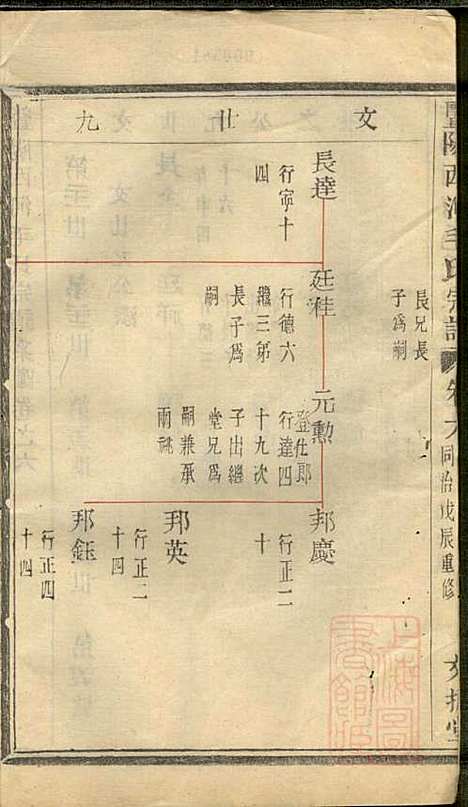 文廿九
長兄長
子爲嗣
長達
行寧十
四
廷桂
行德六
繼三弟
長子爲
嗣
元勲
登仕郎
行達四
十九次
子出繼
堂兄爲
嗣兼承
兩祧
邦慶
行正二
十
邦英
行正二
十四
邦鈺
行正四
十四
西河毛氏宗譜
同治戊辰重修
上海圖
書館